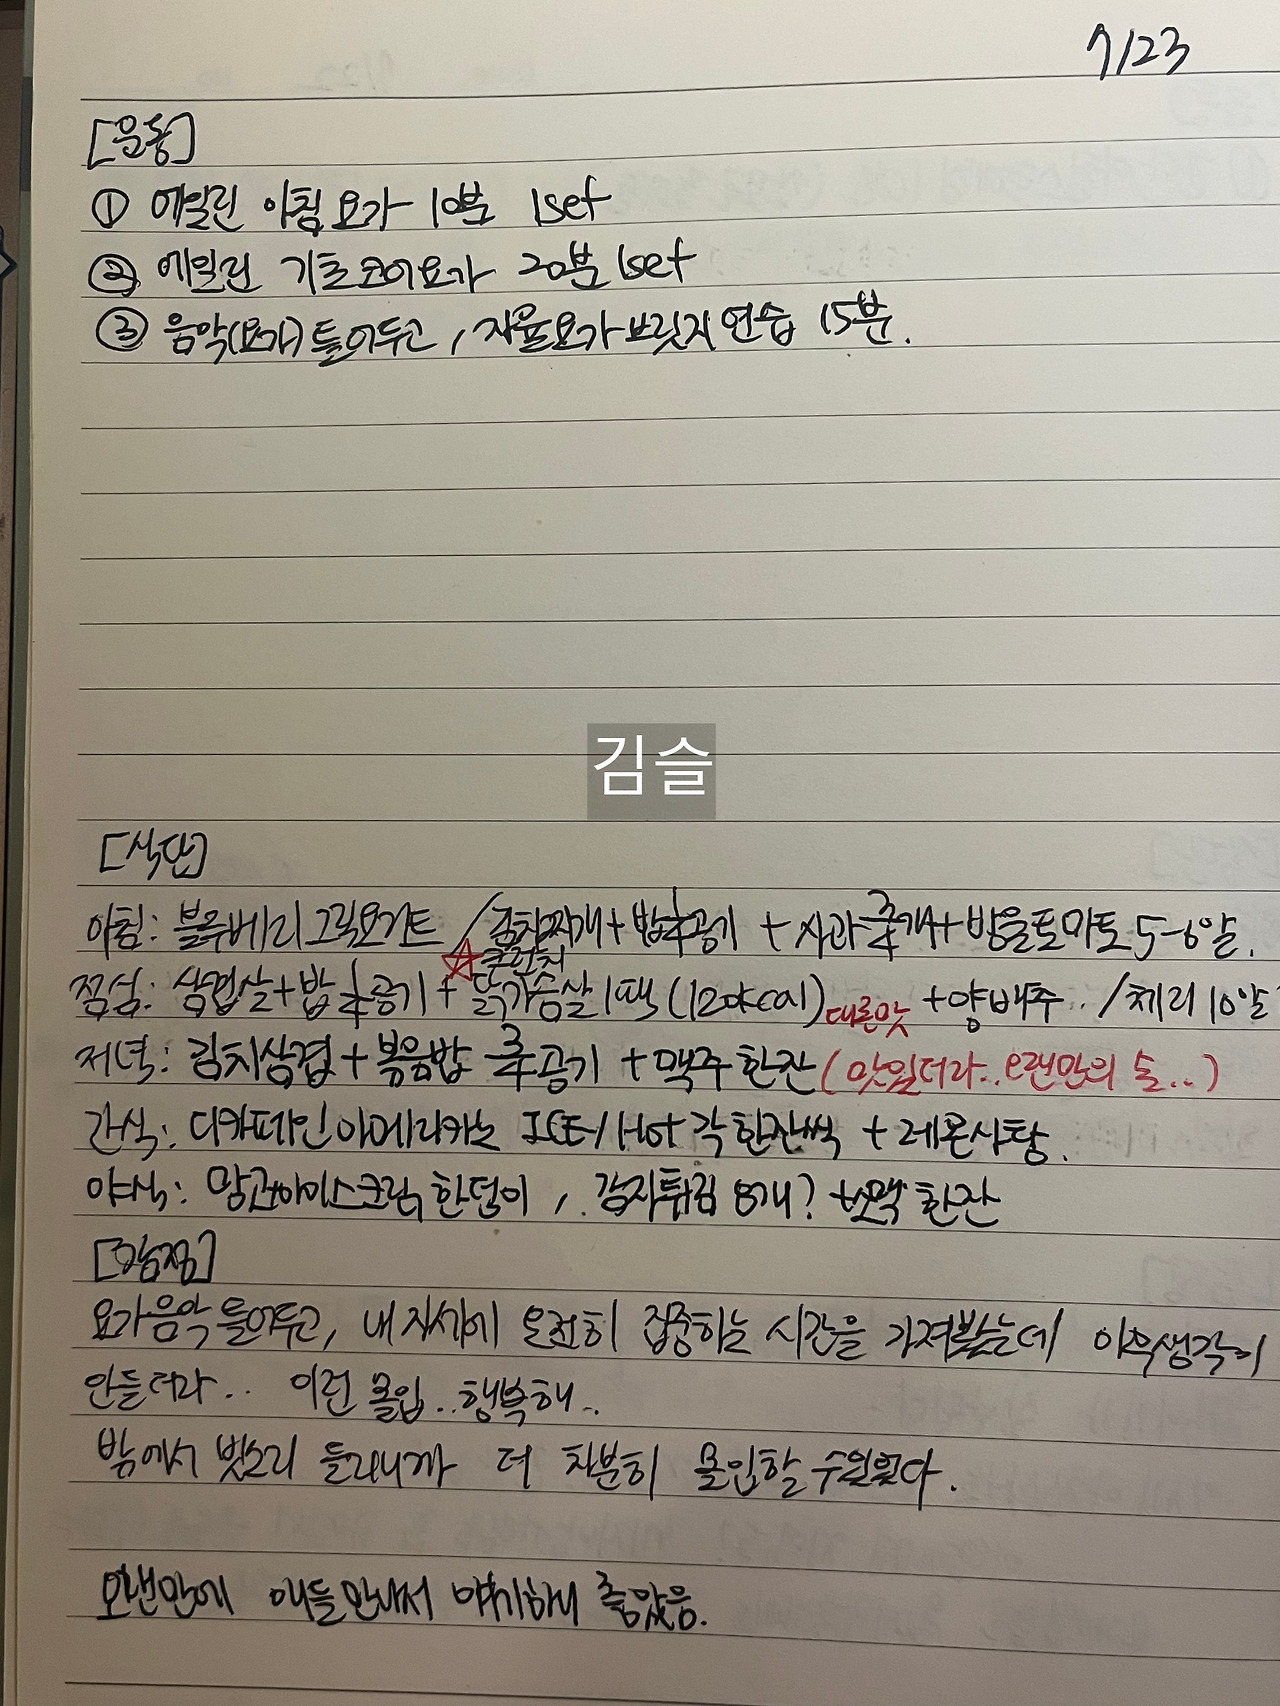 7/23
[운동]
① 에일린 아침요가 10분 1set
② 에일린 기초코어요가 20분 1set
③ 음악(요가)틀어두고, 자율요가브릿지연습 15분.
김슬
[식단]
아침: 블루베리그릭요거트 / 김치찌개+밥 공기 + 사과 개+방울토마토 5-6알.
점심: 삼겹살+밥 공기 + 닭가슴살 1팩 (120kcal) +양배추.. /체리 10알
저녁: 김치삼겹+볶음밥 공기 +맥주한잔 (맛있더라.. 오랜만의 술..)
간식: 디카페인아메리카노 ICE/Hot 각한잔씩 + 레몬사탕.
야식: 망고아이스크림한덩이, 감자튀김 8개? 한잔
[감정]
요가음악틀어두고, 내자세에 온전히 집중하는 시간을 가져봤는데 아무생각이
안들더라.. 이런 몰입..행복해..
밖에서 빗소리 들리니까 더 차분히 몰입할 수있었다.
오랜만에 애들만나서 얘기하니 좋았음.